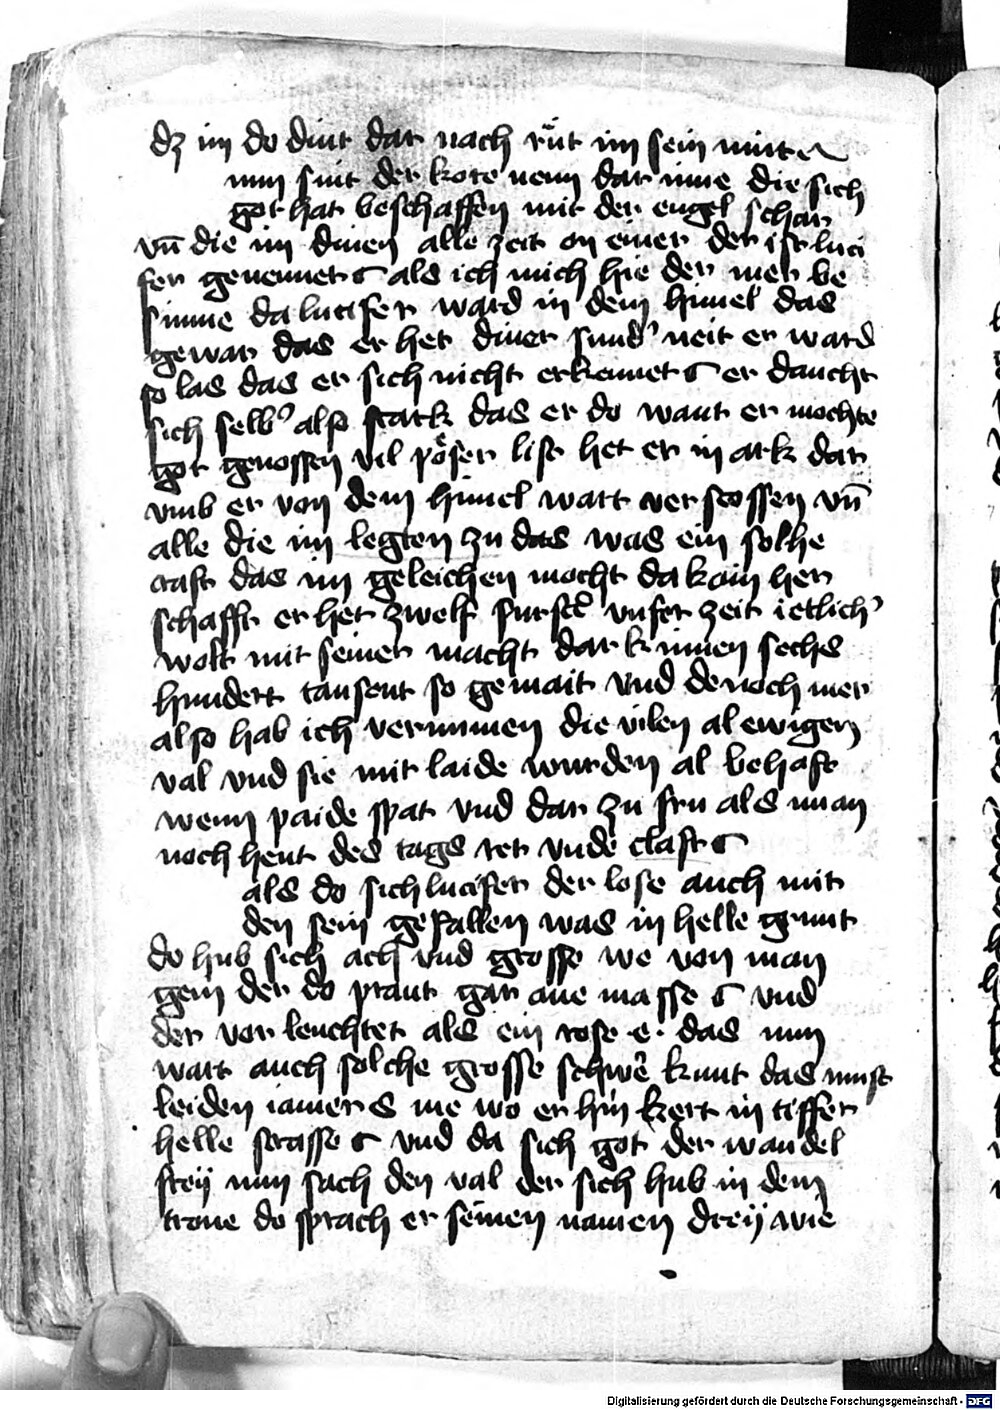 dz im do dint dar nach rüt im sein muter
nun sint der kore neun dar inne die sich
got hat beschaffen mit der engel schar
vn̄ die im dinen alle zeit on einer der ist luci
fer genennet als ich mich hie der mer be
sinne da lucifer ward in dem himel das
gewar das er het diner sund' neit er ward
so las das er sich nicht erkennet er daucht
sich selb' also stark das er do want er mochte
got genossen vil pöser list het er in ark dar
vmb er von dem himel wart verstossen vn̄
alle die im legten zu das was ein solhe
craft das im geleichen mocht da kain her
schafft er het zwelf furst vnser zeit ietlich'
wolt mit seiner macht dar k innen sechs
hundert tausent so gemait vnd denoch mer
also hab ich vernumen die vilen al ewigen
val vnd sie mit laide wurden al behaft
wenn paide spat vnd dar zu fru als man
noch heut des tags ret vnde claft
als do sich lucifer der lose auch mit
den sein gefallen was in helle grunt
do hub sich ach vnd grosse we von man
gem der do prant gar ane masse vnd
der vor leuchtet als ein rose e. das nun
wart auch solche grosse schwer kunt das must
leiden iamers me wo er hin kert in tiffer
helle strasse vnd da sich got der wandel
freÿ nun sach den val der sich hub in dem
trone do sprach er seinen namen dreÿ wie
Digitalisierung gefördert durch die Deutsche Forschungsgemeinschaft - DFG